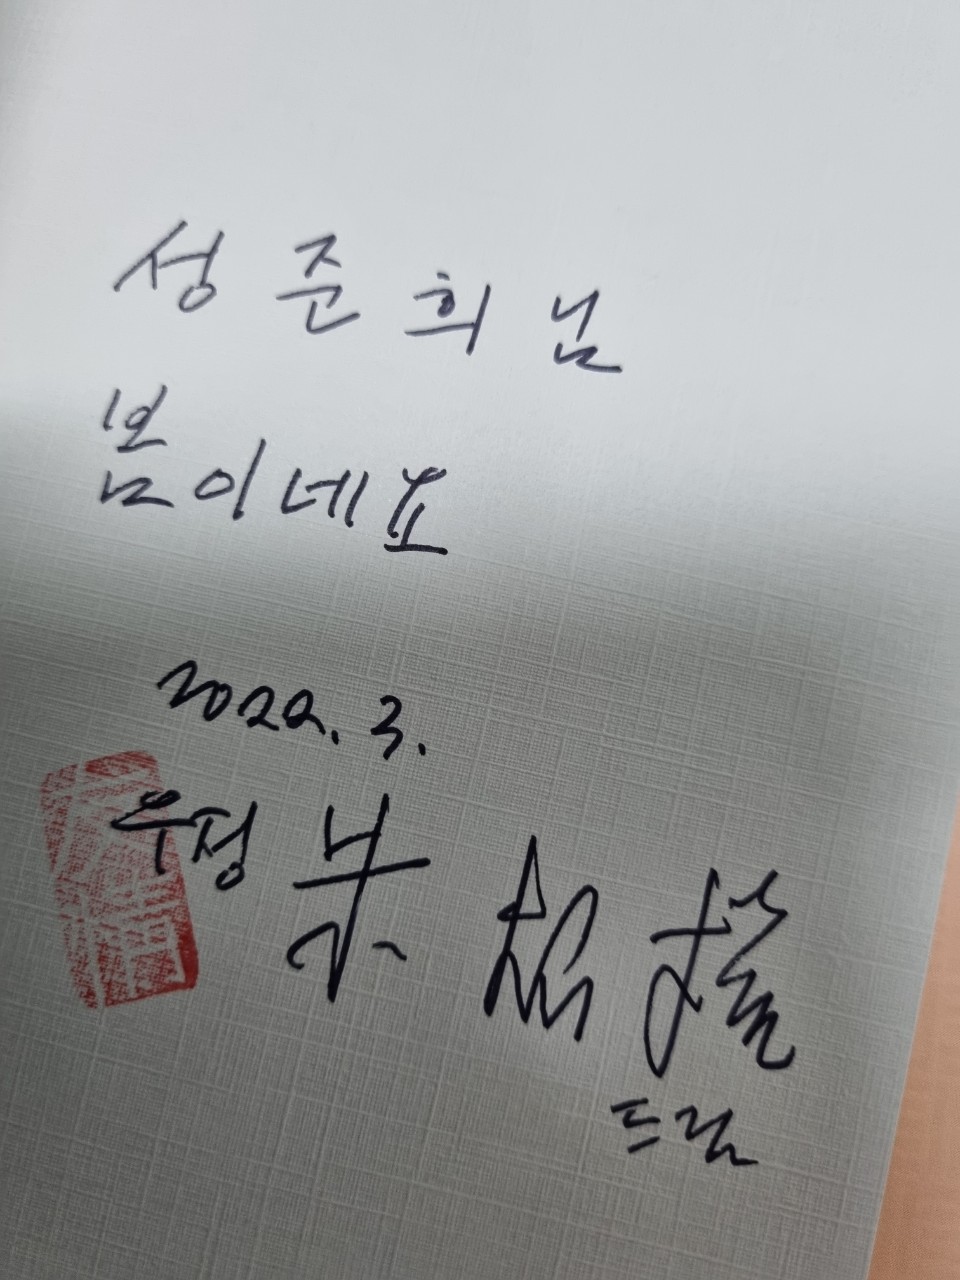 성준희님
봄이네요
2022. 3.
우정
드림